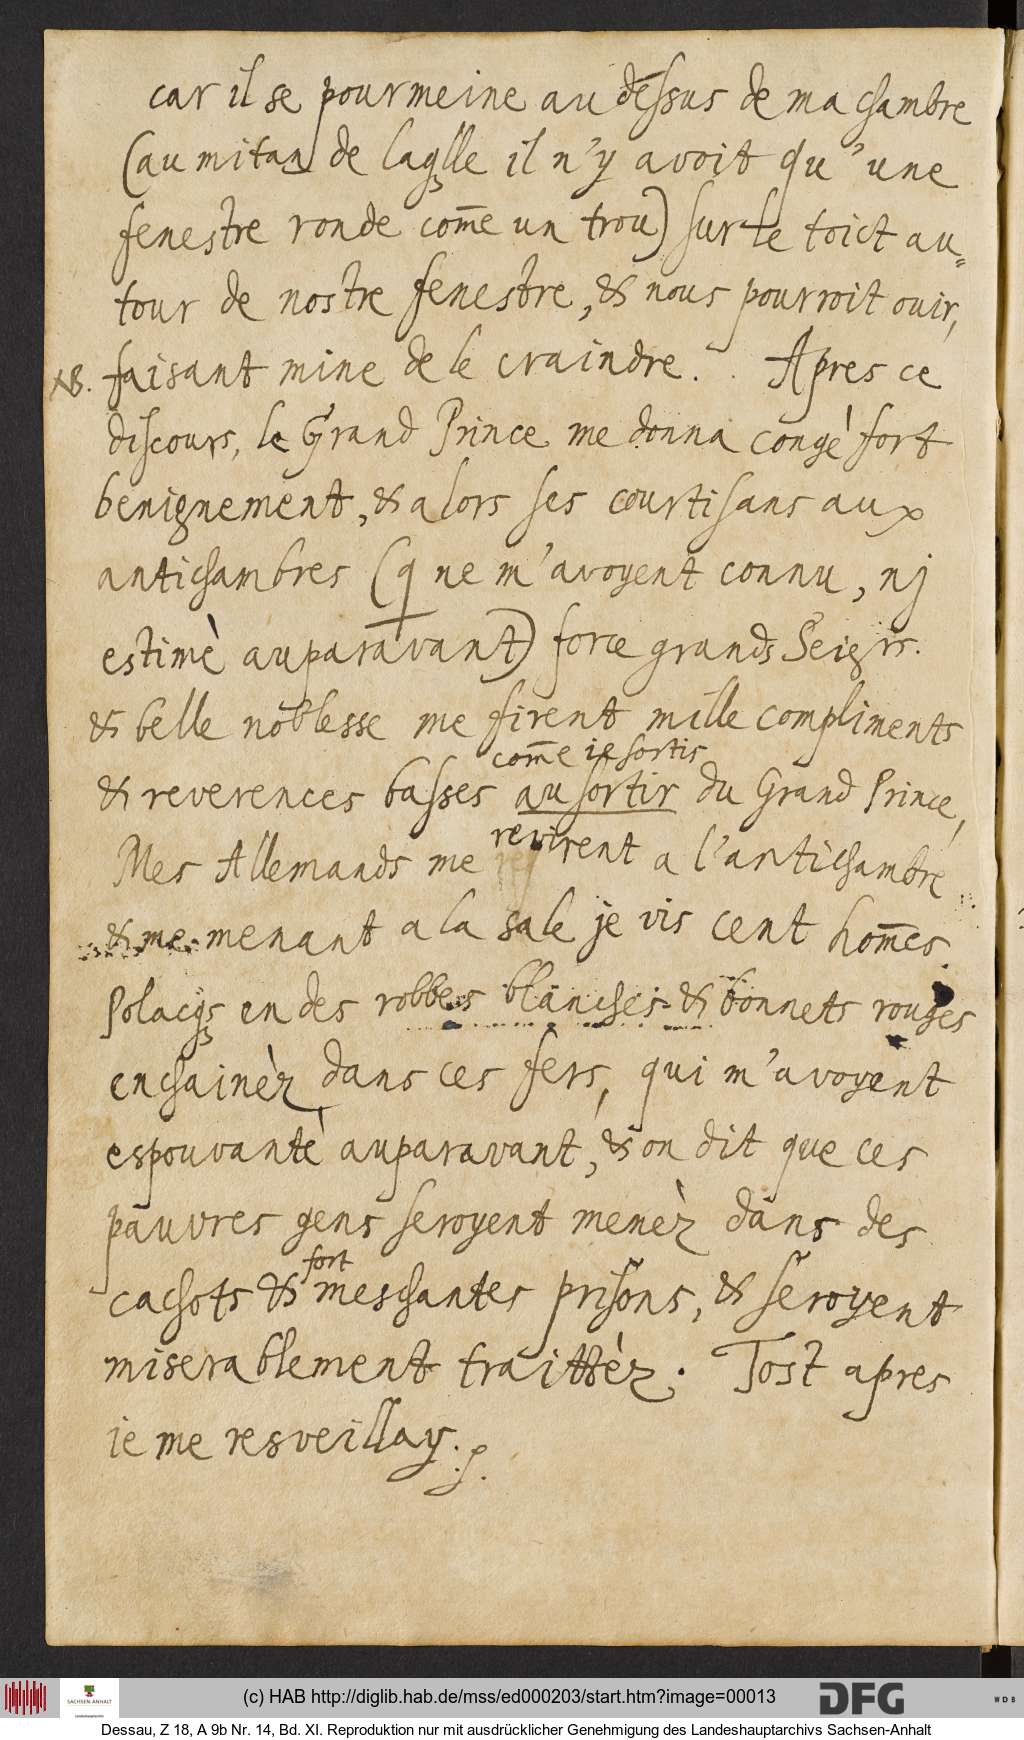 car il se pourmeine au dessus de ma chambre
(au mitan de laqlle il n'y avoit qu'une
fenestre ronde com̄e un trou) sur le toict au=
tour de nostre fenestre, & nous pourroit ouir,
NB. faisant mine de le craindre. . Apres ce
discours, le Grand Prince me donna congè fort
benignement, & alors ses courtisans aux
antichambres (q ne m'avoyent connu, nj
estimè auparavant) force grands Seigrs.
& belle noblesse me firent mille compliments
com̄e ie sortis
& reverences basses au sortir du Grand Prince,
Mes Allemands me revirent a l'antichambre
& me menant a la sale je vis cent hom̄es
Polacqs en des robbes blanches & bonnets rouges
enchainèz dans ces fers, qui m'avoyent
espouvantè auparavant, & on dit que ces
pauvres gens seroyent menèz dans des
fort
cachots & meschantes prisons, & seroyent
miserablement traittèz. Tost apres
ie me resveillay.
(c) HAB http://diglib.hab.de/mss/ed000203/start.htm?image=00013
SACHSEN-ANHALT
DFG
WDB
Dessau, Z 18, A 9b Nr. 14, Bd. XI. Reproduktion nur mit ausdrücklicher Genehmigung des Landeshauptarchivs Sachsen-Anhalt